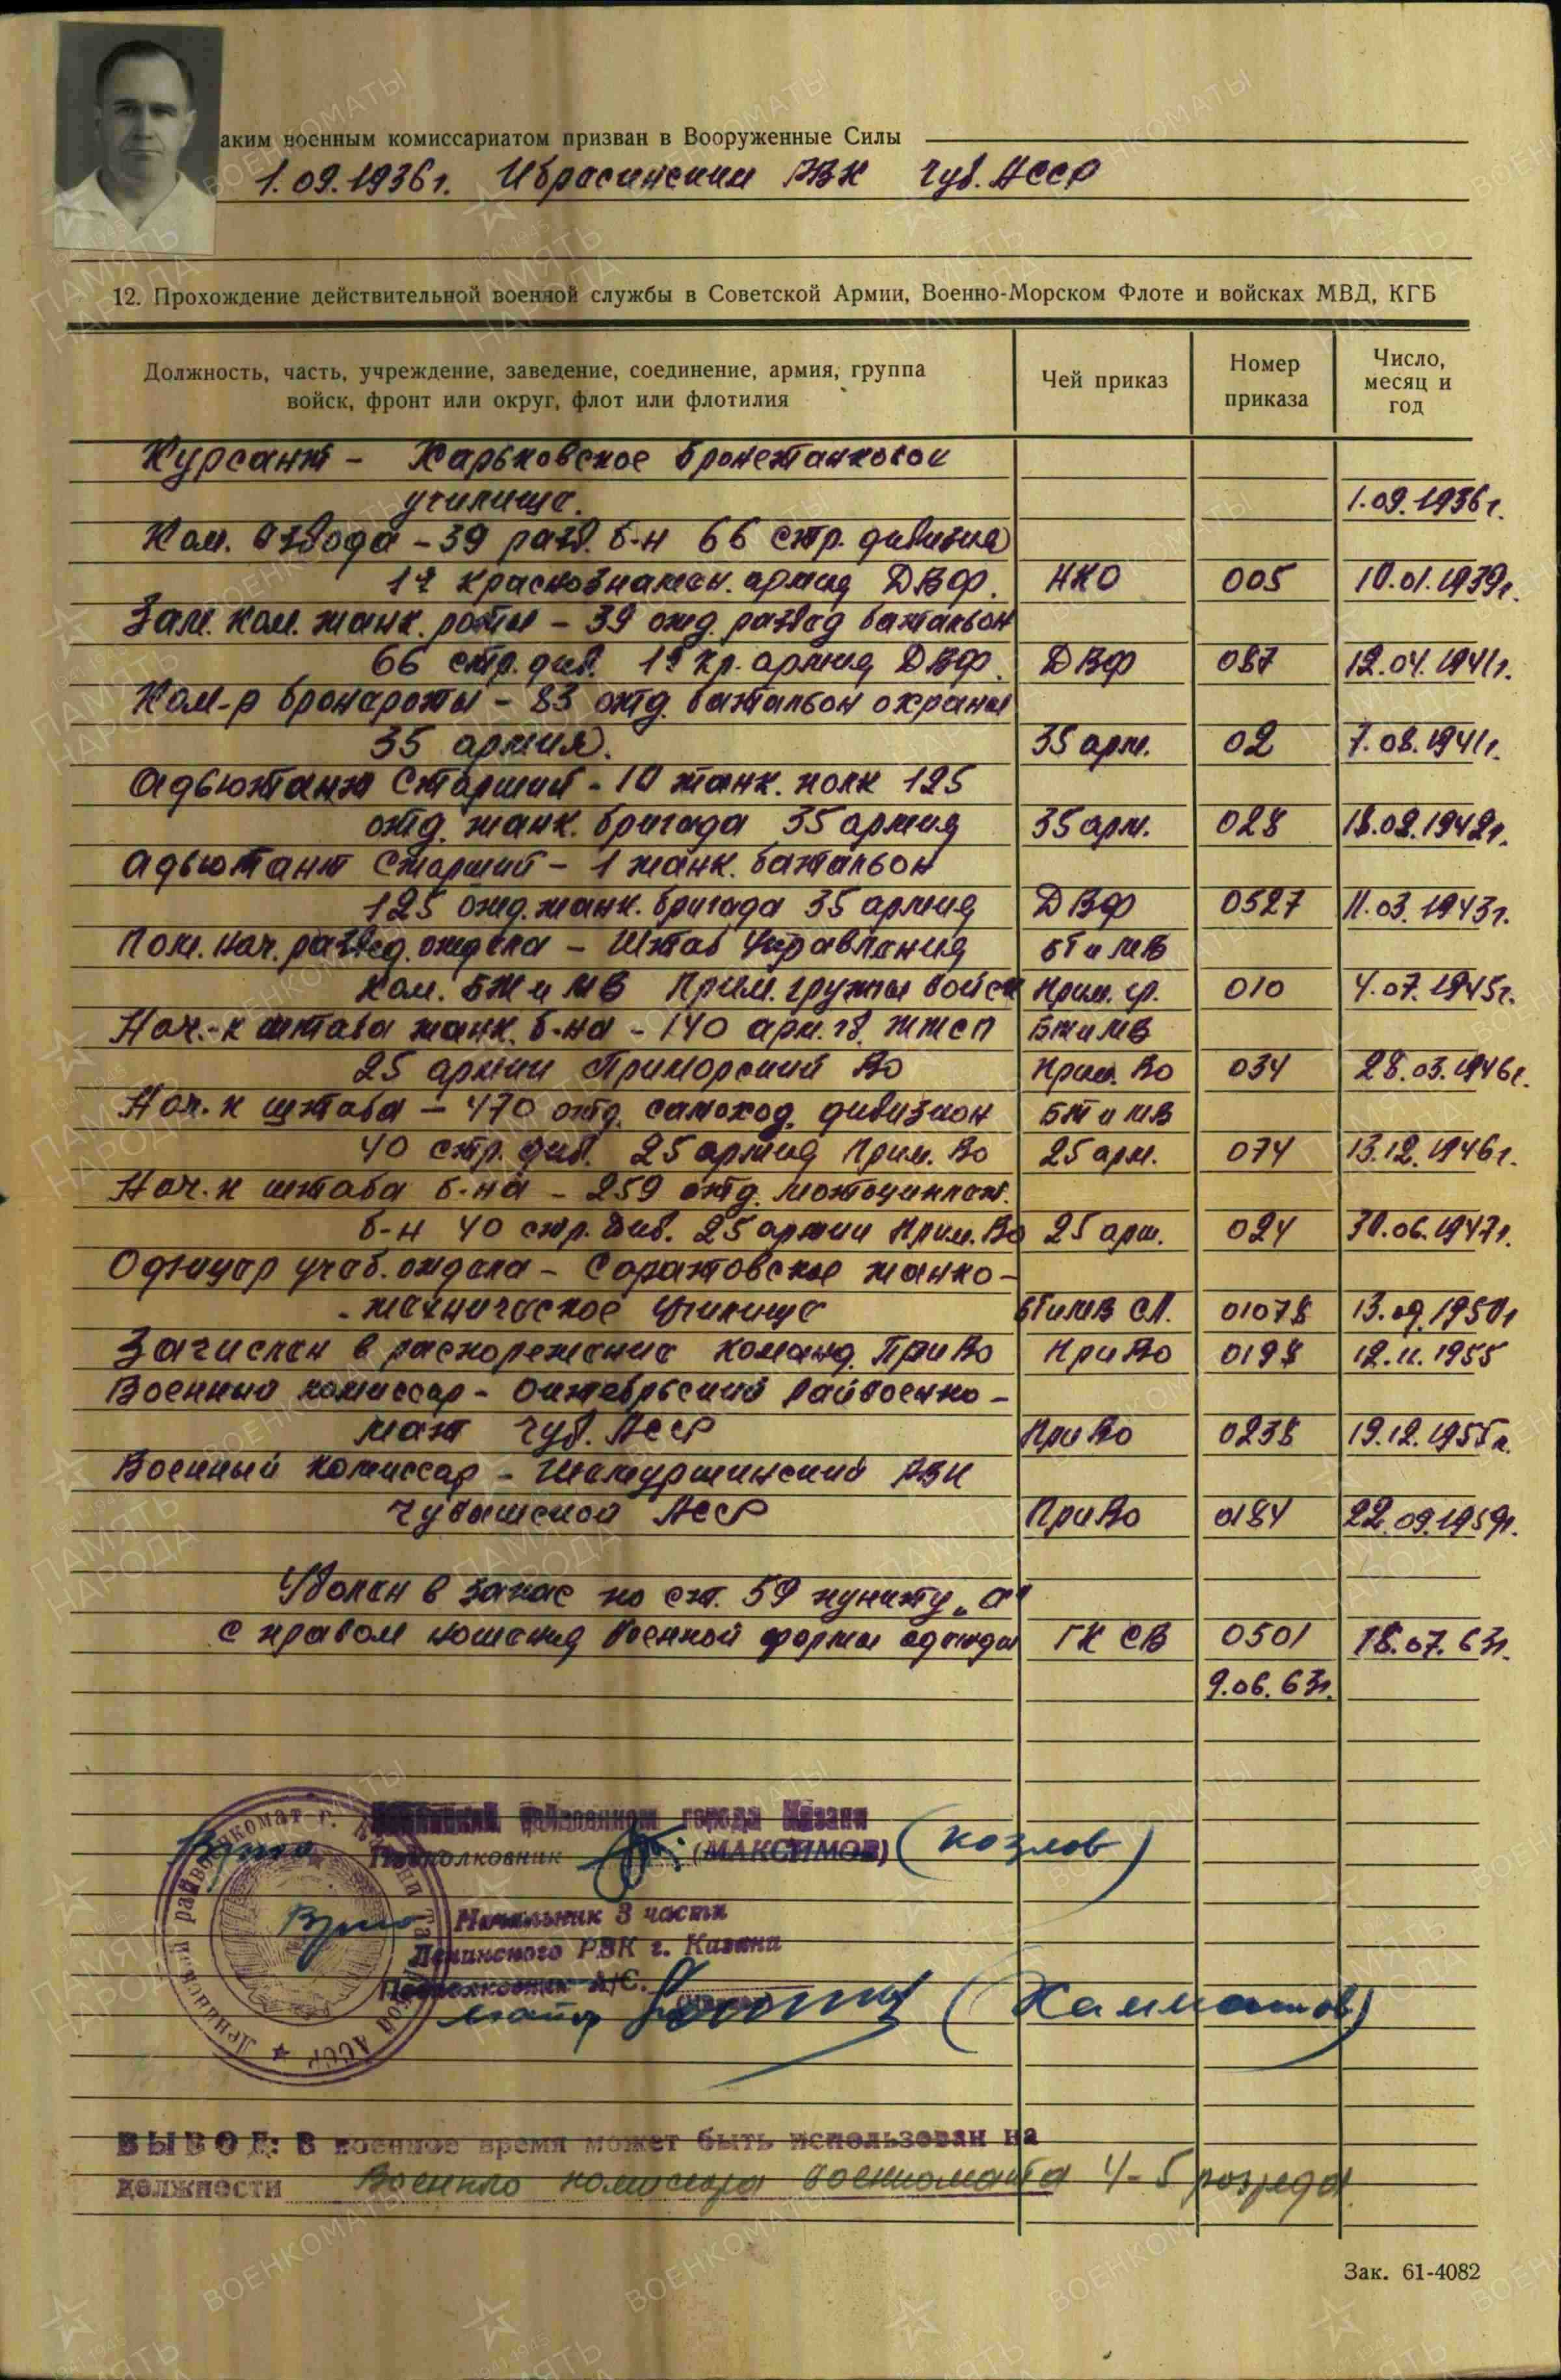 аким военным комиссариатом призван в Вооруженные Силы
1.09.1936г. Ибрасинским РВК Чув. АССР
12. Прохождение действительной военной службы в Советской Армии, Военно-Морском Флоте и войсках МВД, КГБ
Должность, часть, учреждение, заведение, соединение, армия, группа войск, фронт или округ, флот или флотилия Чей приказ Номер приказа Число, месяц и год
Курсант - Харьковское бронетанковое
училище. 1.09.1936г.
Ком. взвода - 39 разв. б-н 66 стр. дивизия
1я краснознамен. армия ДВФ. НКО 005 10.01.1939г.
Зам. ком. танк. роты - 39 отд. развед батальон
66 стр. див. 1я кр. армия ДВФ. ДВФ 087 12.04.1941г.
Ком-р бронероты - 83 отд. батальон охраны
35 армия. 35 арм. 02 7.08.1941г.
Адъютант Старший - 10 танк. полк 125
отд. танк. бригада 35 армия 35 арм. 028 18.02.1942г.
Адъютант Старший - 1 танк. батальон
125 отд. танк. бригада 35 армия ДВФ 0527 11.03.1943г.
Пом. нач. развед. отдела - Штаб Управления БТ и МВ
ком. БТ и МВ Прим. группы войск Прим. гр. 010 4.07.1945г.
Нач-к штаба танк. б-на - 140 арм. гв. ттсп БТ и МВ
25 армии Приморский ВО Прим. ВО 034 28.03.1946г.
Нач-к штаба - 470 отд. самоход. дивизион БТ и МВ
40 стр. див. 25 армия Прим. ВО 25 арм. 074 13.12.1946г.
Нач-к штаба б-на - 259 отд. мотоциклет.
б-н 40 стр. див. 25 армии Прим. ВО 25 арм. 024 30.06.1947г.
Офицер учеб. отдела - Саратовское танко-
техническое училище БТ и МВ СА. 01078 13.09.1950г
Зачислен в распоряжение команд. ПриВО ПриВО 0198 12.11.1955
Военный комиссар - Октябрьский райвоенко-
мат Чув. АССР ПриВО 0238 19.12.1955г.
Военный комиссар - Шемуршинский РВК
Чувашской АССР ПриВО 0184 22.09.1959г.
Уволен в запас по ст. 59 пункту „а"
с правом ношения военной формы одежды ГК СВ 0501 18.07.63г.
9.06.63г.
райвоенком города Казани
Врио Подполковник (МАКСИМОВ) (Козлов)
Врио Начальник 3 части
Ленинского РВК г. Казани
Подполковник А/С.
майор (Хамматов)
ВЫВОД: В военное время может быть использован на
должности Военного комиссара военкомата 4-5 разряда
Зак. 61-4082